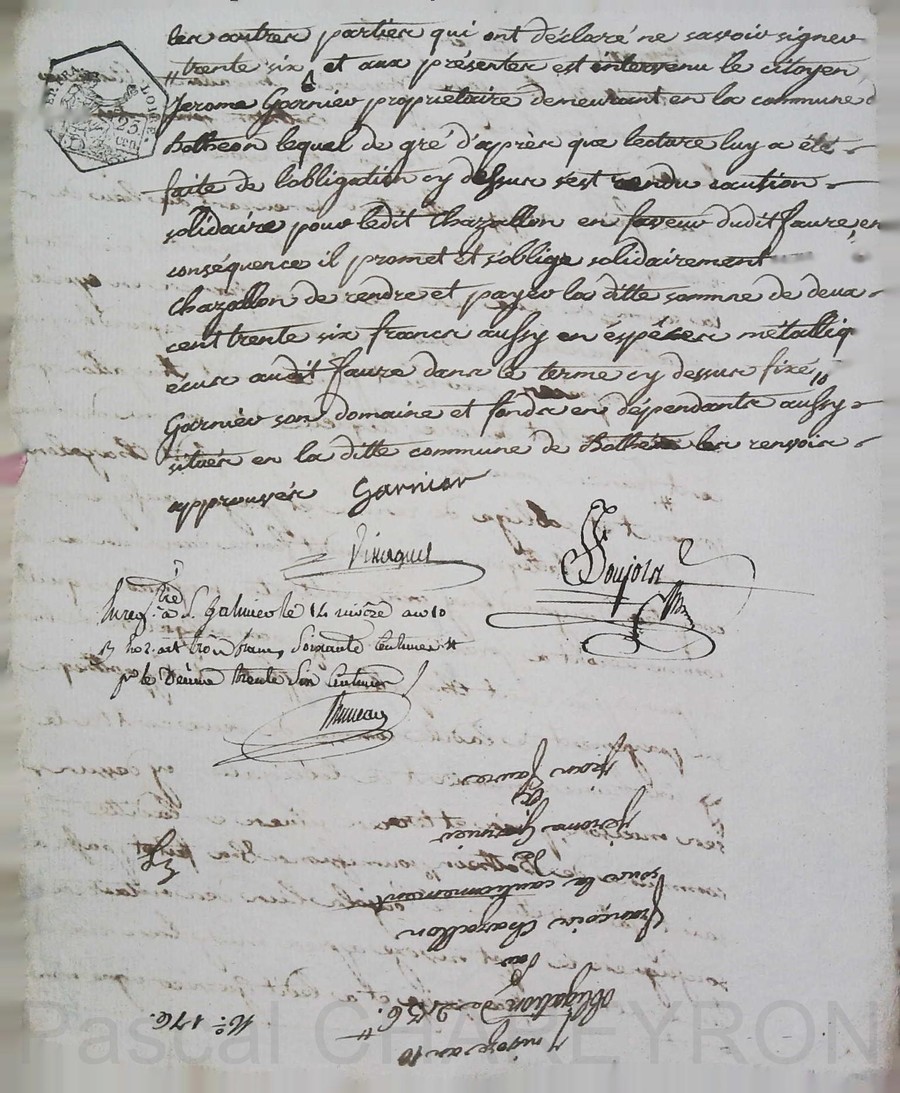 les autres parties qui ont déclaré ne savoir signer
trente six et aux présentes est intervenu le citoyen
Jerome Garnier propriétaire demeurant en la commune d
Batheon lequel de gré d'après que lecture luy a été
faite de l'obligation cy dessus s'est rendu caution
solidaire pour ledit Chazallon en faveur dudit faure, en
conséquence il promet et s'oblige solidairement
Chazallon de rendre et payer la ditte somme de deux
cent trente six francs aussy en éspéces métalliq
écus audit faure dans le terme cy dessus fixé
Garnier son domaine et fonds en dépendants aussy
situés en la ditte commune de les renvois
approuvés Garnier
Soujols
Enreg.tré à S. Galmier le 14 nivôse an 10
trois francs soixante centimes
pr le décime trente six centimes
Bruneau
7 nivose an 10
N.o 176.
obligation de 236.#
par
françois Chazallon
sous le cautionnement
jerome Garnier
à
jean faure
LOIRE
25
Pascal CHAREYRON